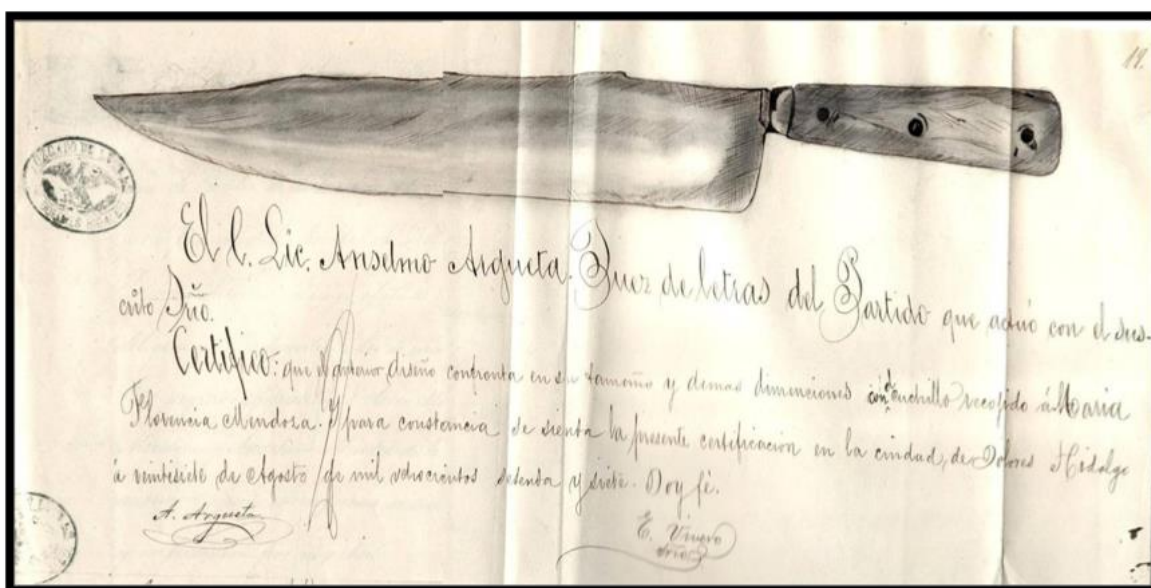 19.
El C. Lic. Anselmo Argueta. Juez de letras del Partido que actúo con el sus-
crito Srio.
Certifico: que el anterior diseño confronta en su tamaño y demas dimenciones con el cuchillo recojido á Maria
Florencia Mendoza. Y para constancia se sienta la presente certificacion en la ciudad, de Dolores Hidalgo
á veintisiete de Agosto de mil ochocientos setenta y siete. Doy fé.
A. Argueta
E. Vivero
Srio